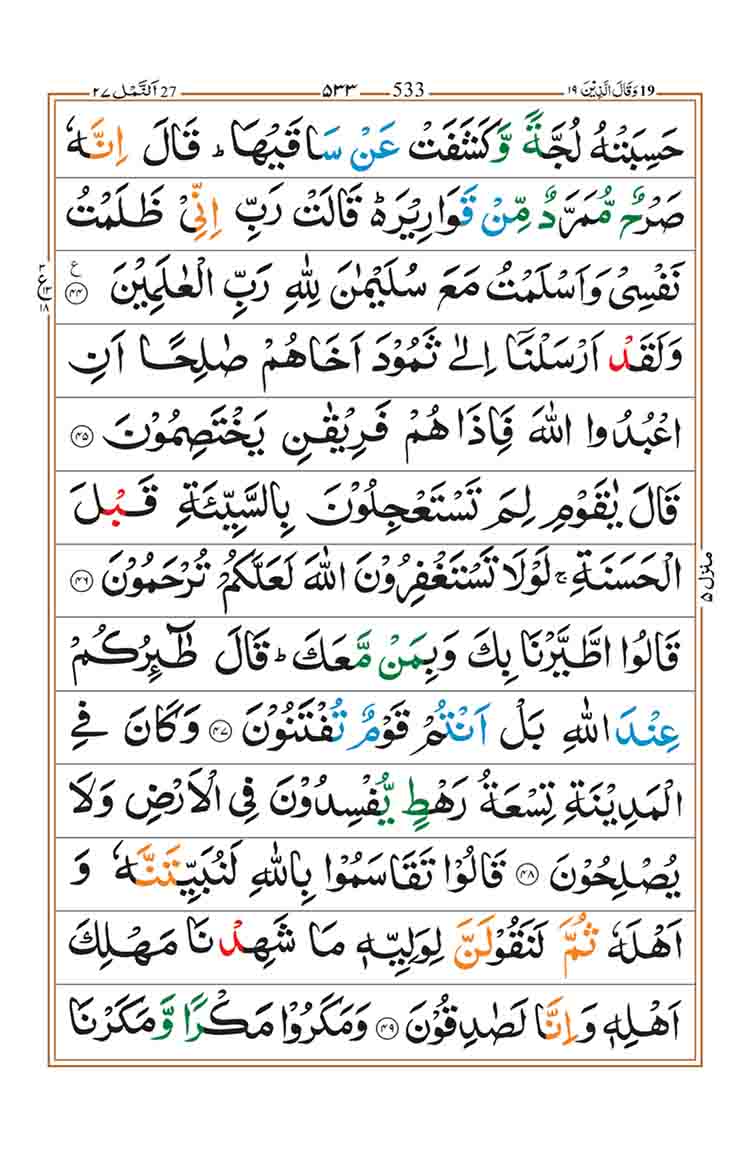 19 وَقَالَ الَّذِيْنَ ۱۹ 533 ۵۳۳ 27 اَلنَّمْل ۲۷
حَسِبَتْهُ لُجَّةً وَّكَشَفَتْ عَنْ سَاقَيْهَا ؕ قَالَ اِنَّهٗ
صَرْحٌ مُّمَرَّدٌ مِّنْ قَوَارِيْرَ ؕ۬ قَالَتْ رَبِّ اِنِّىْ ظَلَمْتُ
نَفْسِىْ وَاَسْلَمْتُ مَعَ سُلَيْمٰنَ لِلّٰهِ رَبِّ الْعٰلَمِيْنَ ۴۴ ع
وَلَقَدْ اَرْسَلْنَاۤ اِلٰى ثَمُوْدَ اَخَاهُمْ صٰلِحًا اَنِ
اعْبُدُوا اللّٰهَ فَاِذَا هُمْ فَرِيْقٰنِ يَخْتَصِمُوْنَ ۴۵
قَالَ يٰقَوْمِ لِمَ تَسْتَعْجِلُوْنَ بِالسَّيِّئَةِ قَبْلَ
الْحَسَنَةِ ۚ لَوْلَا تَسْتَغْفِرُوْنَ اللّٰهَ لَعَلَّكُمْ تُرْحَمُوْنَ ۴۶
قَالُوا اطَّيَّرْنَا بِكَ وَبِمَنْ مَّعَكَ ؕ قَالَ طٰٓئِرُكُمْ
عِنْدَ اللّٰهِ بَلْ اَنْتُمْ قَوْمٌ تُفْتَنُوْنَ ۴۷ وَكَانَ فِى
الْمَدِيْنَةِ تِسْعَةُ رَهْطٍ يُّفْسِدُوْنَ فِى الْاَرْضِ وَلَا
يُصْلِحُوْنَ ۴۸ قَالُوْا تَقَاسَمُوْا بِاللّٰهِ لَنُبَيِّتَنَّهٗ وَ
اَهْلَهٗ ثُمَّ لَنَقُوْلَنَّ لِوَلِيِّهٖ مَا شَهِدْنَا مَهْلِكَ
اَهْلِهٖ وَاِنَّا لَصٰدِقُوْنَ ۴۹ وَمَكَرُوْا مَكْرًا وَّمَكَرْنَا
ع ۱۳ ۱۸
منزل ۵